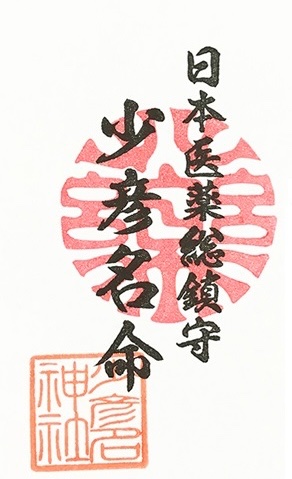 日本医薬総鎮守
少彦名命
少彦名
神社